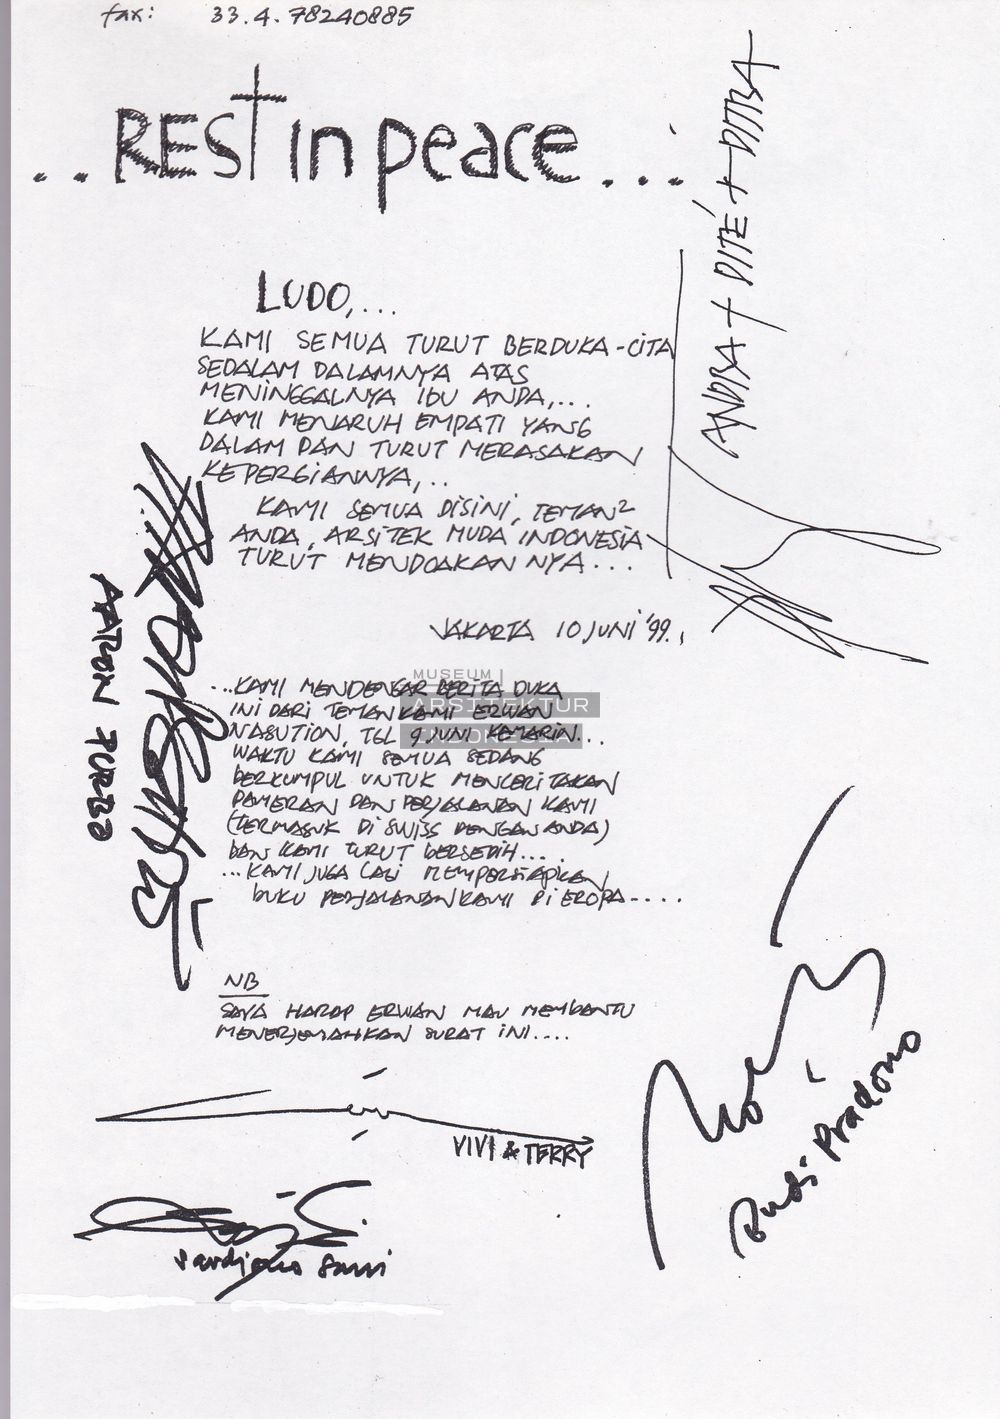 fax: 33.4.78240885
..REST in peace...
LUDO,...
KAMI SEMUA TURUT BERDUKA-CITA
SEDALAM DALAMNYA ATAS
MENINGGALNYA IBU ANDA,...
KAMI MENARUH EMPATI YANG
DALAM DAN TURUT MERASAKAN
KEPERGIANNYA,..
KAMI SEMUA DISINI, TEMAN2
ANDA, ARSITEK MUDA INDONESIA
TURUT MENDOAKANNYA...
JAKARTA 10 JUNI '99.,
...KAMI MENDENGAR BERITA DUKA
INI DARI TEMAN KAMI ERWAN
NASUTION, TGL 9 JUNI KEMARIN...
WAKTU KAMI SEMUA SEDANG
BERKUMPUL UNTUK MENCERITAKAN
PAMERAN DAN PERJALANAN KAMI
(TERMASUK DI SWISS DENGAN ANDA)
DAN KAMI TURUT BERSEDIH....
...KAMI JUGA LAGI MEMPERSIAPKAN
BUKU PERJALANAN KAMI DI EROPA-....
NB
SAYA HARAP ERWAN MAU MEMBANTU
MENERJEMAHKAN SURAT INI....
VIVI & TERRY
Sardjono Sani
Budi Pradono
AARON PURBO
ANDRA + DITÉ + DITRA
MUSEUM
ARSITEKTUR
INDONESIA